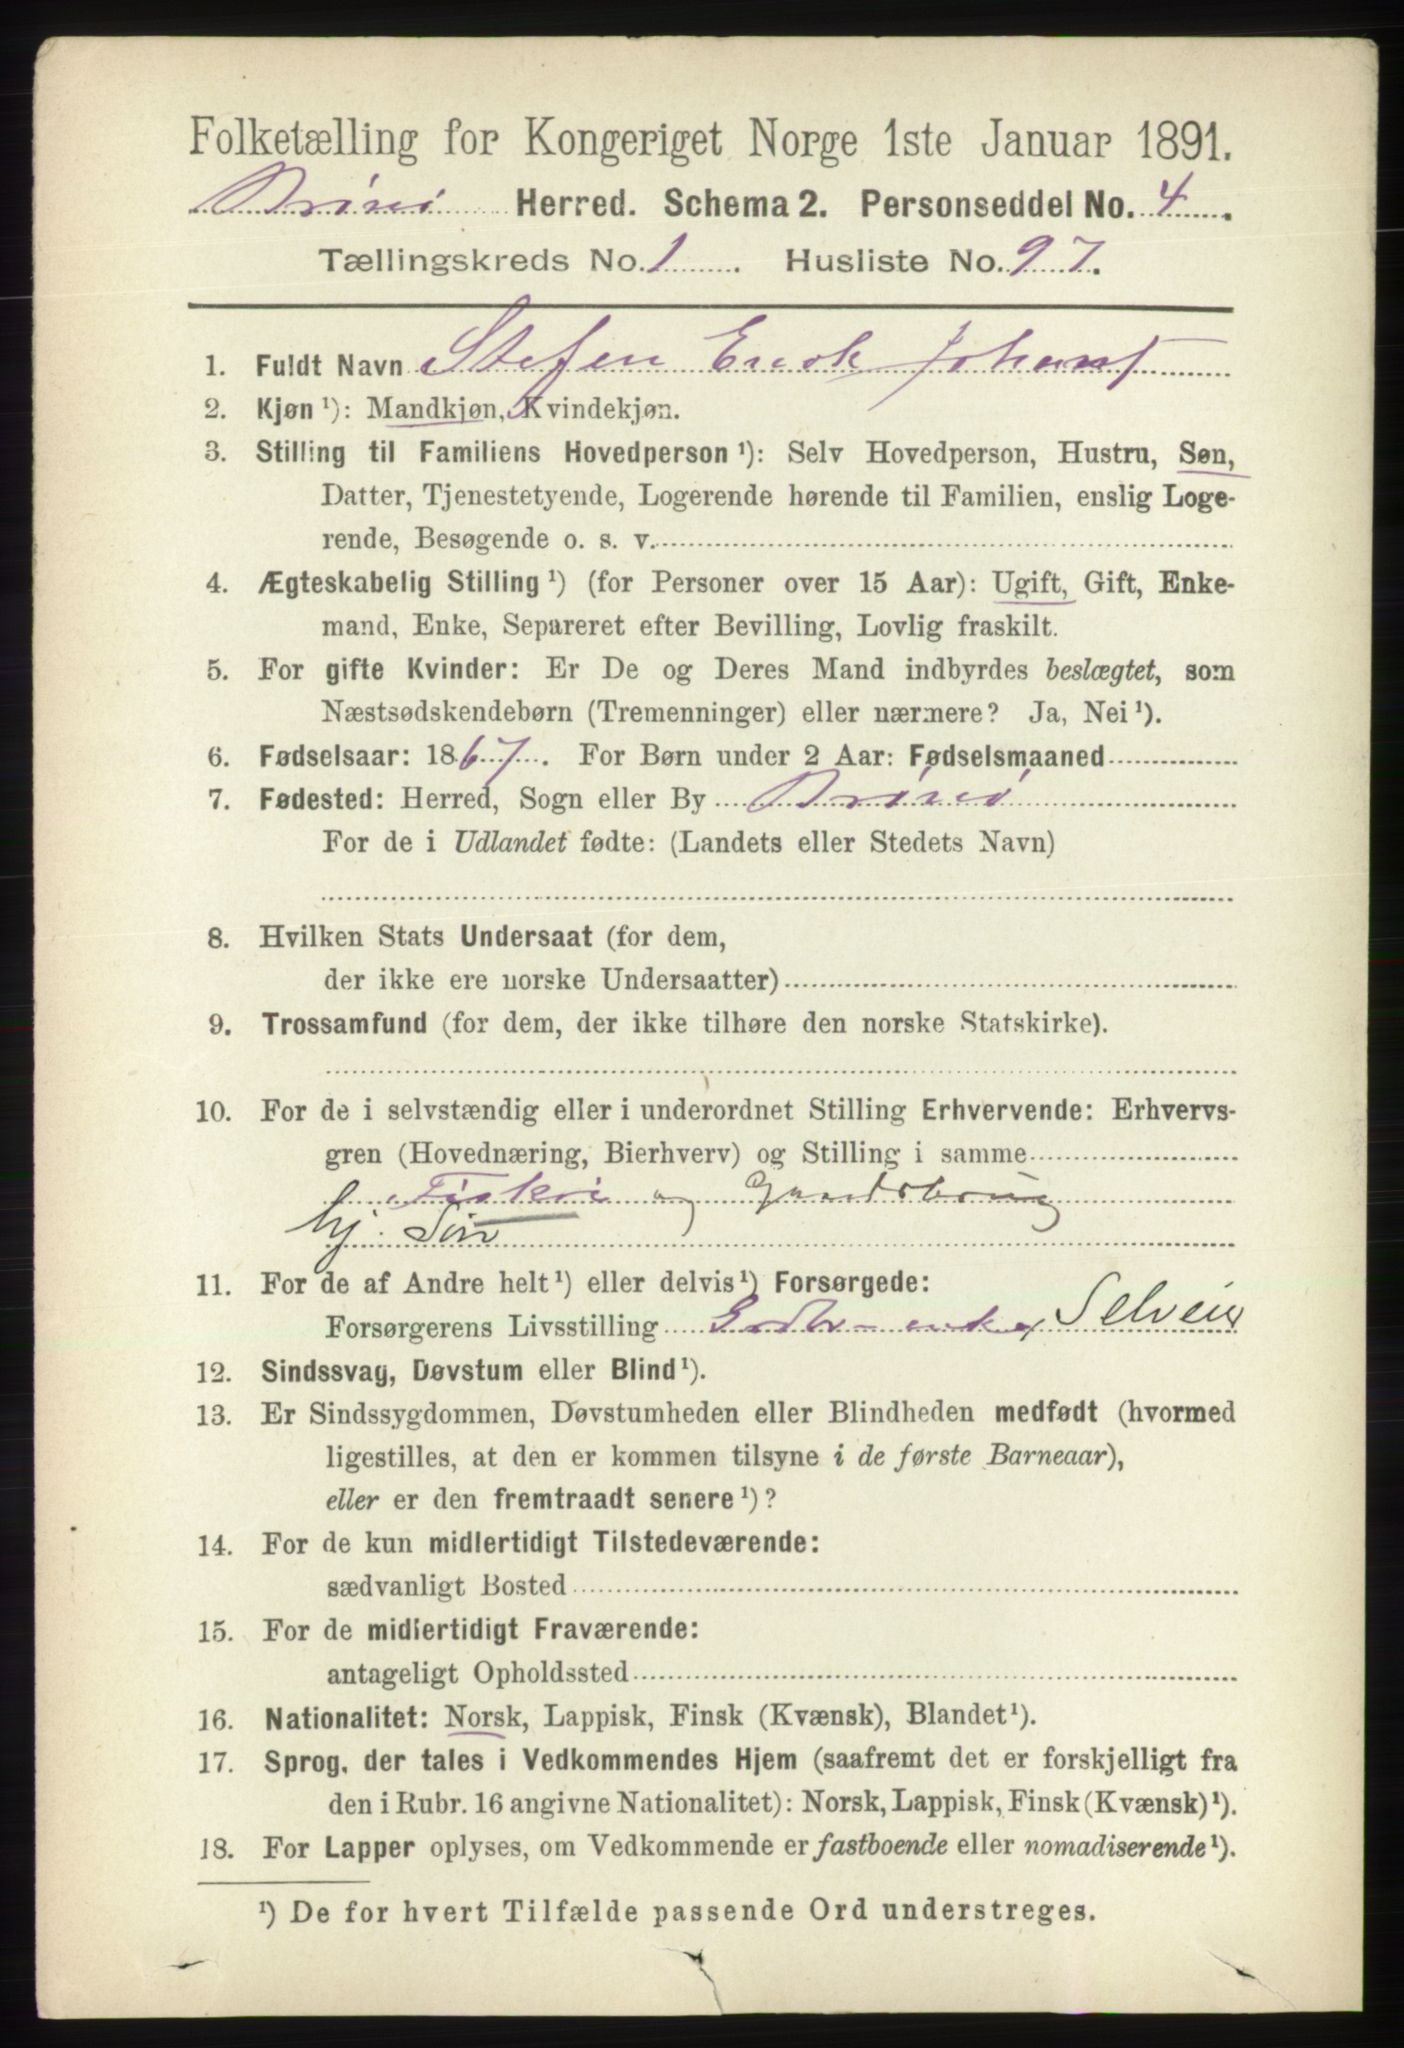 Folketælling for Kongeriget Norge 1ste Januar 1891.
Brönö Herred. Schema 2. Personseddel No. 4.
Tællingskreds No. 1. Husliste No. 97.
1. Fuldt Navn Stefen Erick Johans
2. Kjøn ¹): Mandkjøn, Kvindekjøn.
3. Stilling til Familiens Hovedperson ¹): Selv Hovedperson, Hustru, Søn,
Datter, Tjenestetyende, Logerende hørende til Familien, enslig Loge-
rende, Besøgende o. s. v.
4. Ægteskabelig Stilling ¹) (for Personer over 15 Aar): Ugift, Gift, Enke-
mand, Enke, Separeret efter Bevilling, Lovlig fraskilt.
5. For gifte Kvinder: Er De og Deres Mand indbyrdes beslægtet, som
Næstsødskendebørn (Tremenninger) eller nærmere? Ja, Nei ¹).
6. Fødselsaar: 1867. For Børn under 2 Aar: Fødselsmaaned
7. Fødested: Herred, Sogn eller By Brönö
For de i Udlandet fødte: (Landets eller Stedets Navn)
8. Hvilken Stats Undersaat (for dem,
der ikke ere norske Undersaatter)
9. Trossamfund (for dem, der ikke tilhøre den norske Statskirke).
10. For de i selvstændig eller i underordnet Stilling Erhvervende: Erhvervs-
gren (Hovednæring, Bierhverv) og Stilling i samme
Fiskeri og Gaardsbrug
hj. Søn
11. For de af Andre helt ¹) eller delvis ¹) Forsørgede:
Forsørgerens Livsstilling Selveier
12. Sindssvag, Døvstum eller Blind ¹).
13. Er Sindssygdommen, Døvstumheden eller Blindheden medfødt (hvormed
ligestilles, at den er kommen tilsyne i de første Barneaar),
eller er den fremtraadt senere ¹)?
14. For de kun midlertidigt Tilstedeværende:
sædvanligt Bosted
15. For de midlertidigt Fraværende:
antageligt Opholdssted
16. Nationalitet: Norsk, Lappisk, Finsk (Kvænsk), Blandet ¹).
17. Sprog, der tales i Vedkommendes Hjem (saafremt det er forskjelligt fra
den i Rubr. 16 angivne Nationalitet): Norsk, Lappisk, Finsk (Kvænsk) ¹).
18. For Lapper oplyses, om Vedkommende er fastboende eller nomadiserende ¹).
¹) De for hvert Tilfælde passende Ord understreges.